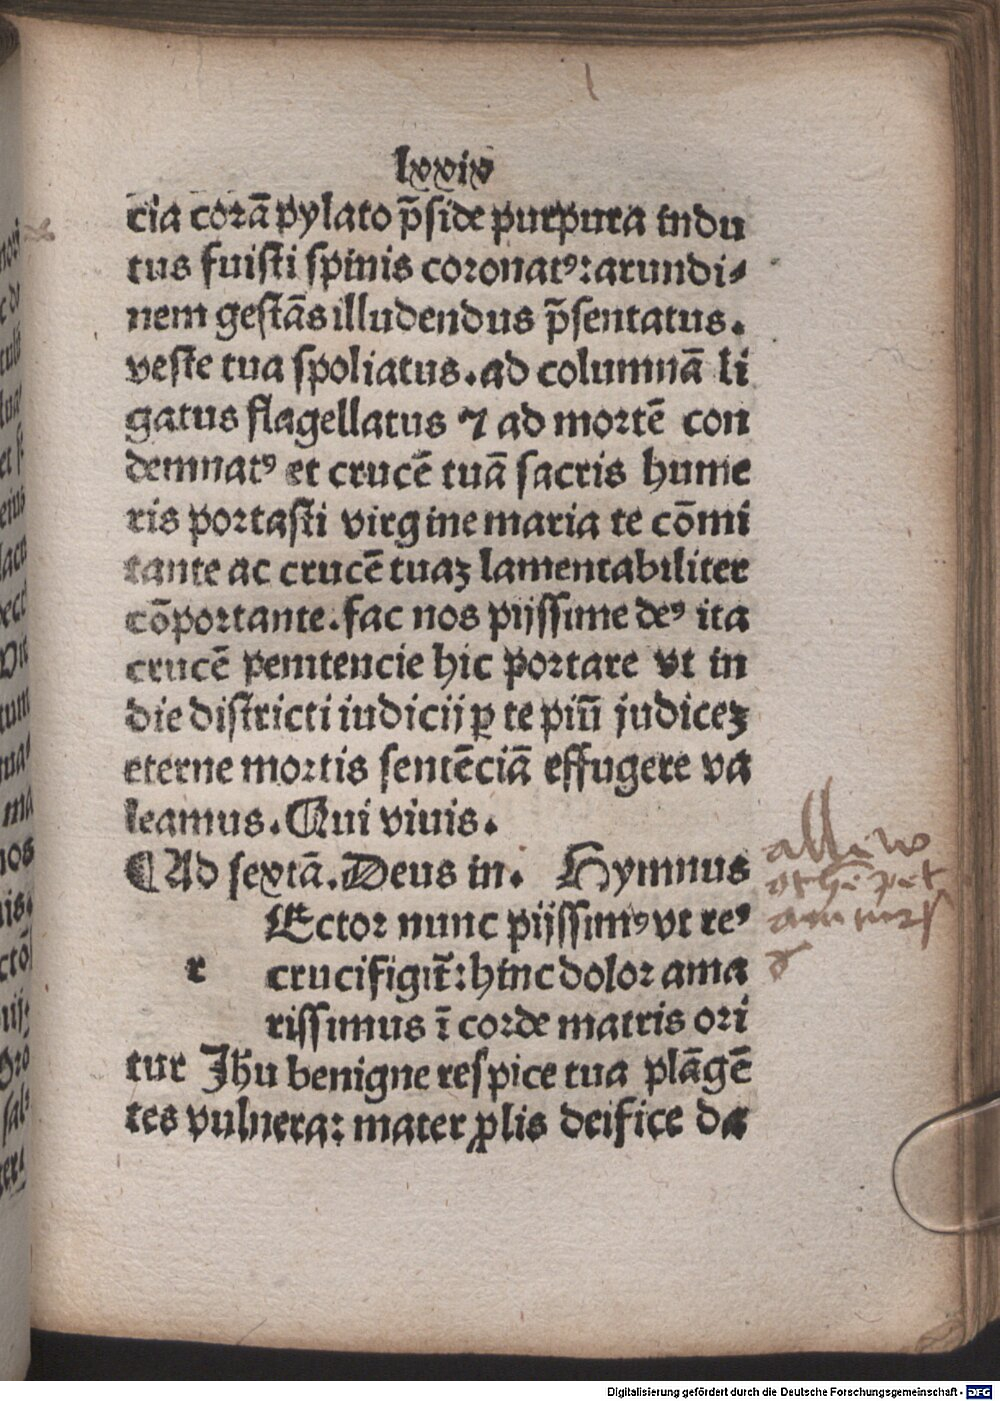 lxxiv
cia corā pylato p̄side purpura indu
tus fuisti spinis coronatꝰ: arundi⸗
nem gestās illudendus p̄sentatus.
veste tua spoliatus. ad columnā li
gatus flagellatus ⁊ ad mortē con
demnatꝰ et crucē tuā sacris hume
ris portasti virgine maria te cōmi
tante ac crucē tuaꝫ lamentabiliter
cōportante. fac nos pijssime deꝰ ita
crucē penitencie hic portare vt in
die districti iudicij ꝑ te piū judiceꝫ
eterne mortis sentēciā effugere va
leamus. Qui viuis.
¶ Ad sextā. Deus in. Hymnus
REctor nunc pijssimꝰ vt reꝰ
r crucifigit̄: hinc dolor ama
rissimus ī corde matris ori
tur Jhu benigne respice tua plāgē
tes vulnera: mater ꝓlis deifice da
Digitalisierung gefördert durch die Deutsche Forschungsgemeinschaft - DFG